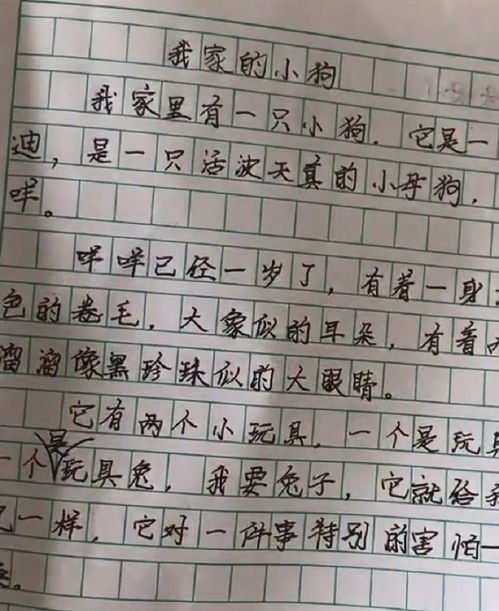 我家的小狗
我家里有一只小狗.它是一
迪,是一只活波天真的小母狗.
咩。
咩咩已经一岁了,有着一身
色的卷毛.大象似的耳朵,有着
溜溜像黑珍珠似的大眼睛。
它有两个小玩具.一个是玩具
一个是玩具兔,我要兔子,它就给我
一样,它对一件事特别的害怕